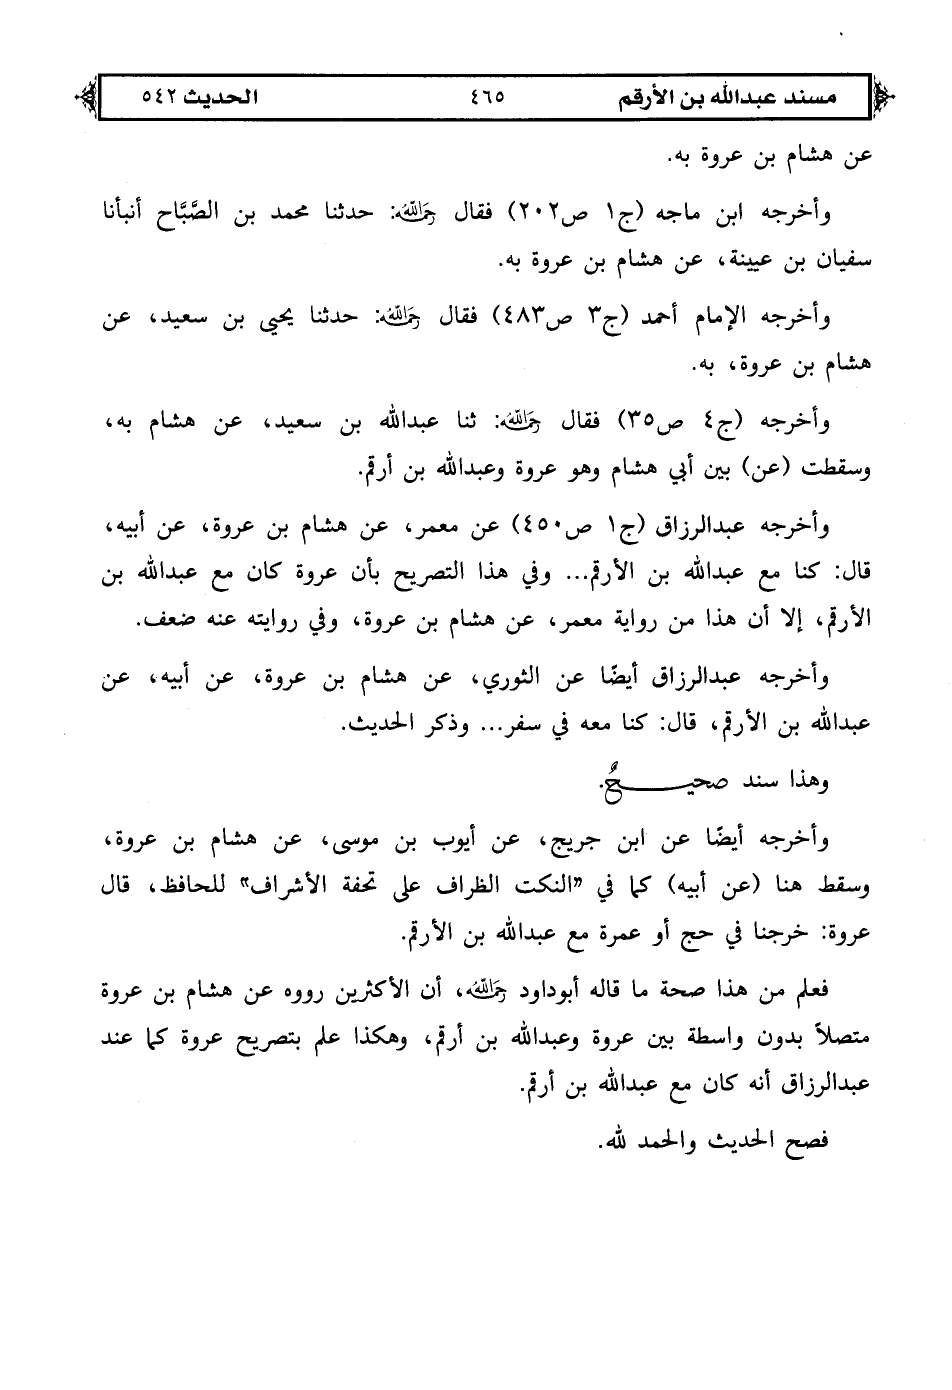 مسند عبدالله بن الأرقم ٤٦٥ الحديث ٥٤٢
عن هشام بن عروة به.
وأخرجه ابن ماجه (ج١ ص٢٠٢) فقال رحمه الله: حدثنا محمد بن الصَّبَّاح أنبأنا
سفيان بن عيينة، عن هشام بن عروة به.
وأخرجه الإمام أحمد (ج٣ ص٤٨٣) فقال رحمه الله: حدثنا يحيى بن سعيد، عن
هشام بن عروة، به.
وأخرجه (ج٤ ص٣٥) فقال رحمه الله: ثنا عبدالله بن سعيد، عن هشام به،
وسقطت (عن) بين أبي هشام وهو عروة وعبدالله بن أرقم.
وأخرجه عبدالرزاق (ج١ ص٤٥٠) عن معمر، عن هشام بن عروة، عن أبيه،
قال: كنا مع عبدالله بن الأرقم... وفي هذا التصريح بأن عروة كان مع عبدالله بن
الأرقم، إلا أن هذا من رواية معمر، عن هشام بن عروة، وفي روايته عنه ضعف.
وأخرجه عبدالرزاق أيضًا عن الثوري، عن هشام بن عروة، عن أبيه، عن
عبدالله بن الأرقم، قال: كنا معه في سفر... وذكر الحديث.
وهذا سند صحيـــــحٌ.
وأخرجه أيضًا عن ابن جريج، عن أيوب بن موسى، عن هشام بن عروة،
وسقط هنا (عن أبيه) كما في "النكت الظراف على تحفة الأشراف" للحافظ، قال
عروة: خرجنا في حج أو عمرة مع عبدالله بن الأرقم.
فعلم من هذا صحة ما قاله أبوداود رحمه الله، أن الأكثرين رووه عن هشام بن عروة
متصلاً بدون واسطة بين عروة وعبدالله بن أرقم، وهكذا علم بتصريح عروة كما عند
عبدالرزاق أنه كان مع عبدالله بن أرقم.
فصح الحديث والحمد لله.